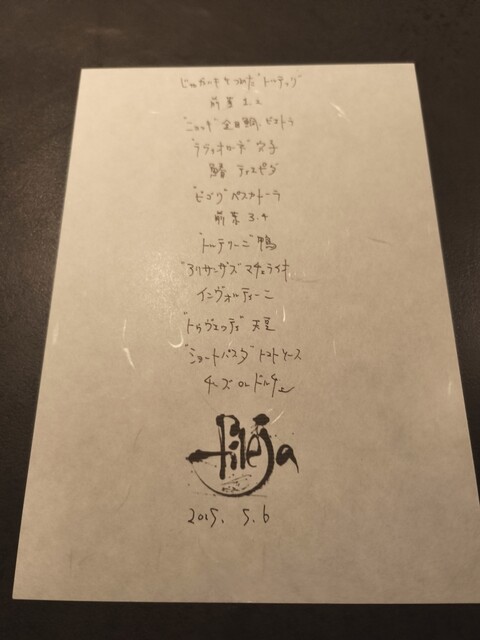 じゃがいもをつめた"トルテッリ"
前菜 1.2
"ニョッケ" 金目鯛、ビエトラ
"ラヴィオローネ" 穴子
鰆 ティエピダ
"ピーゴリ" ペスカトーラ
前菜 3.4
"トルテリーニ" 鴨
"マチェライオ
インヴォルティーニ
天豆
"ショートパスタ" トマトソース
チーズ or ドルチェ
fileja
2015. 5. 6